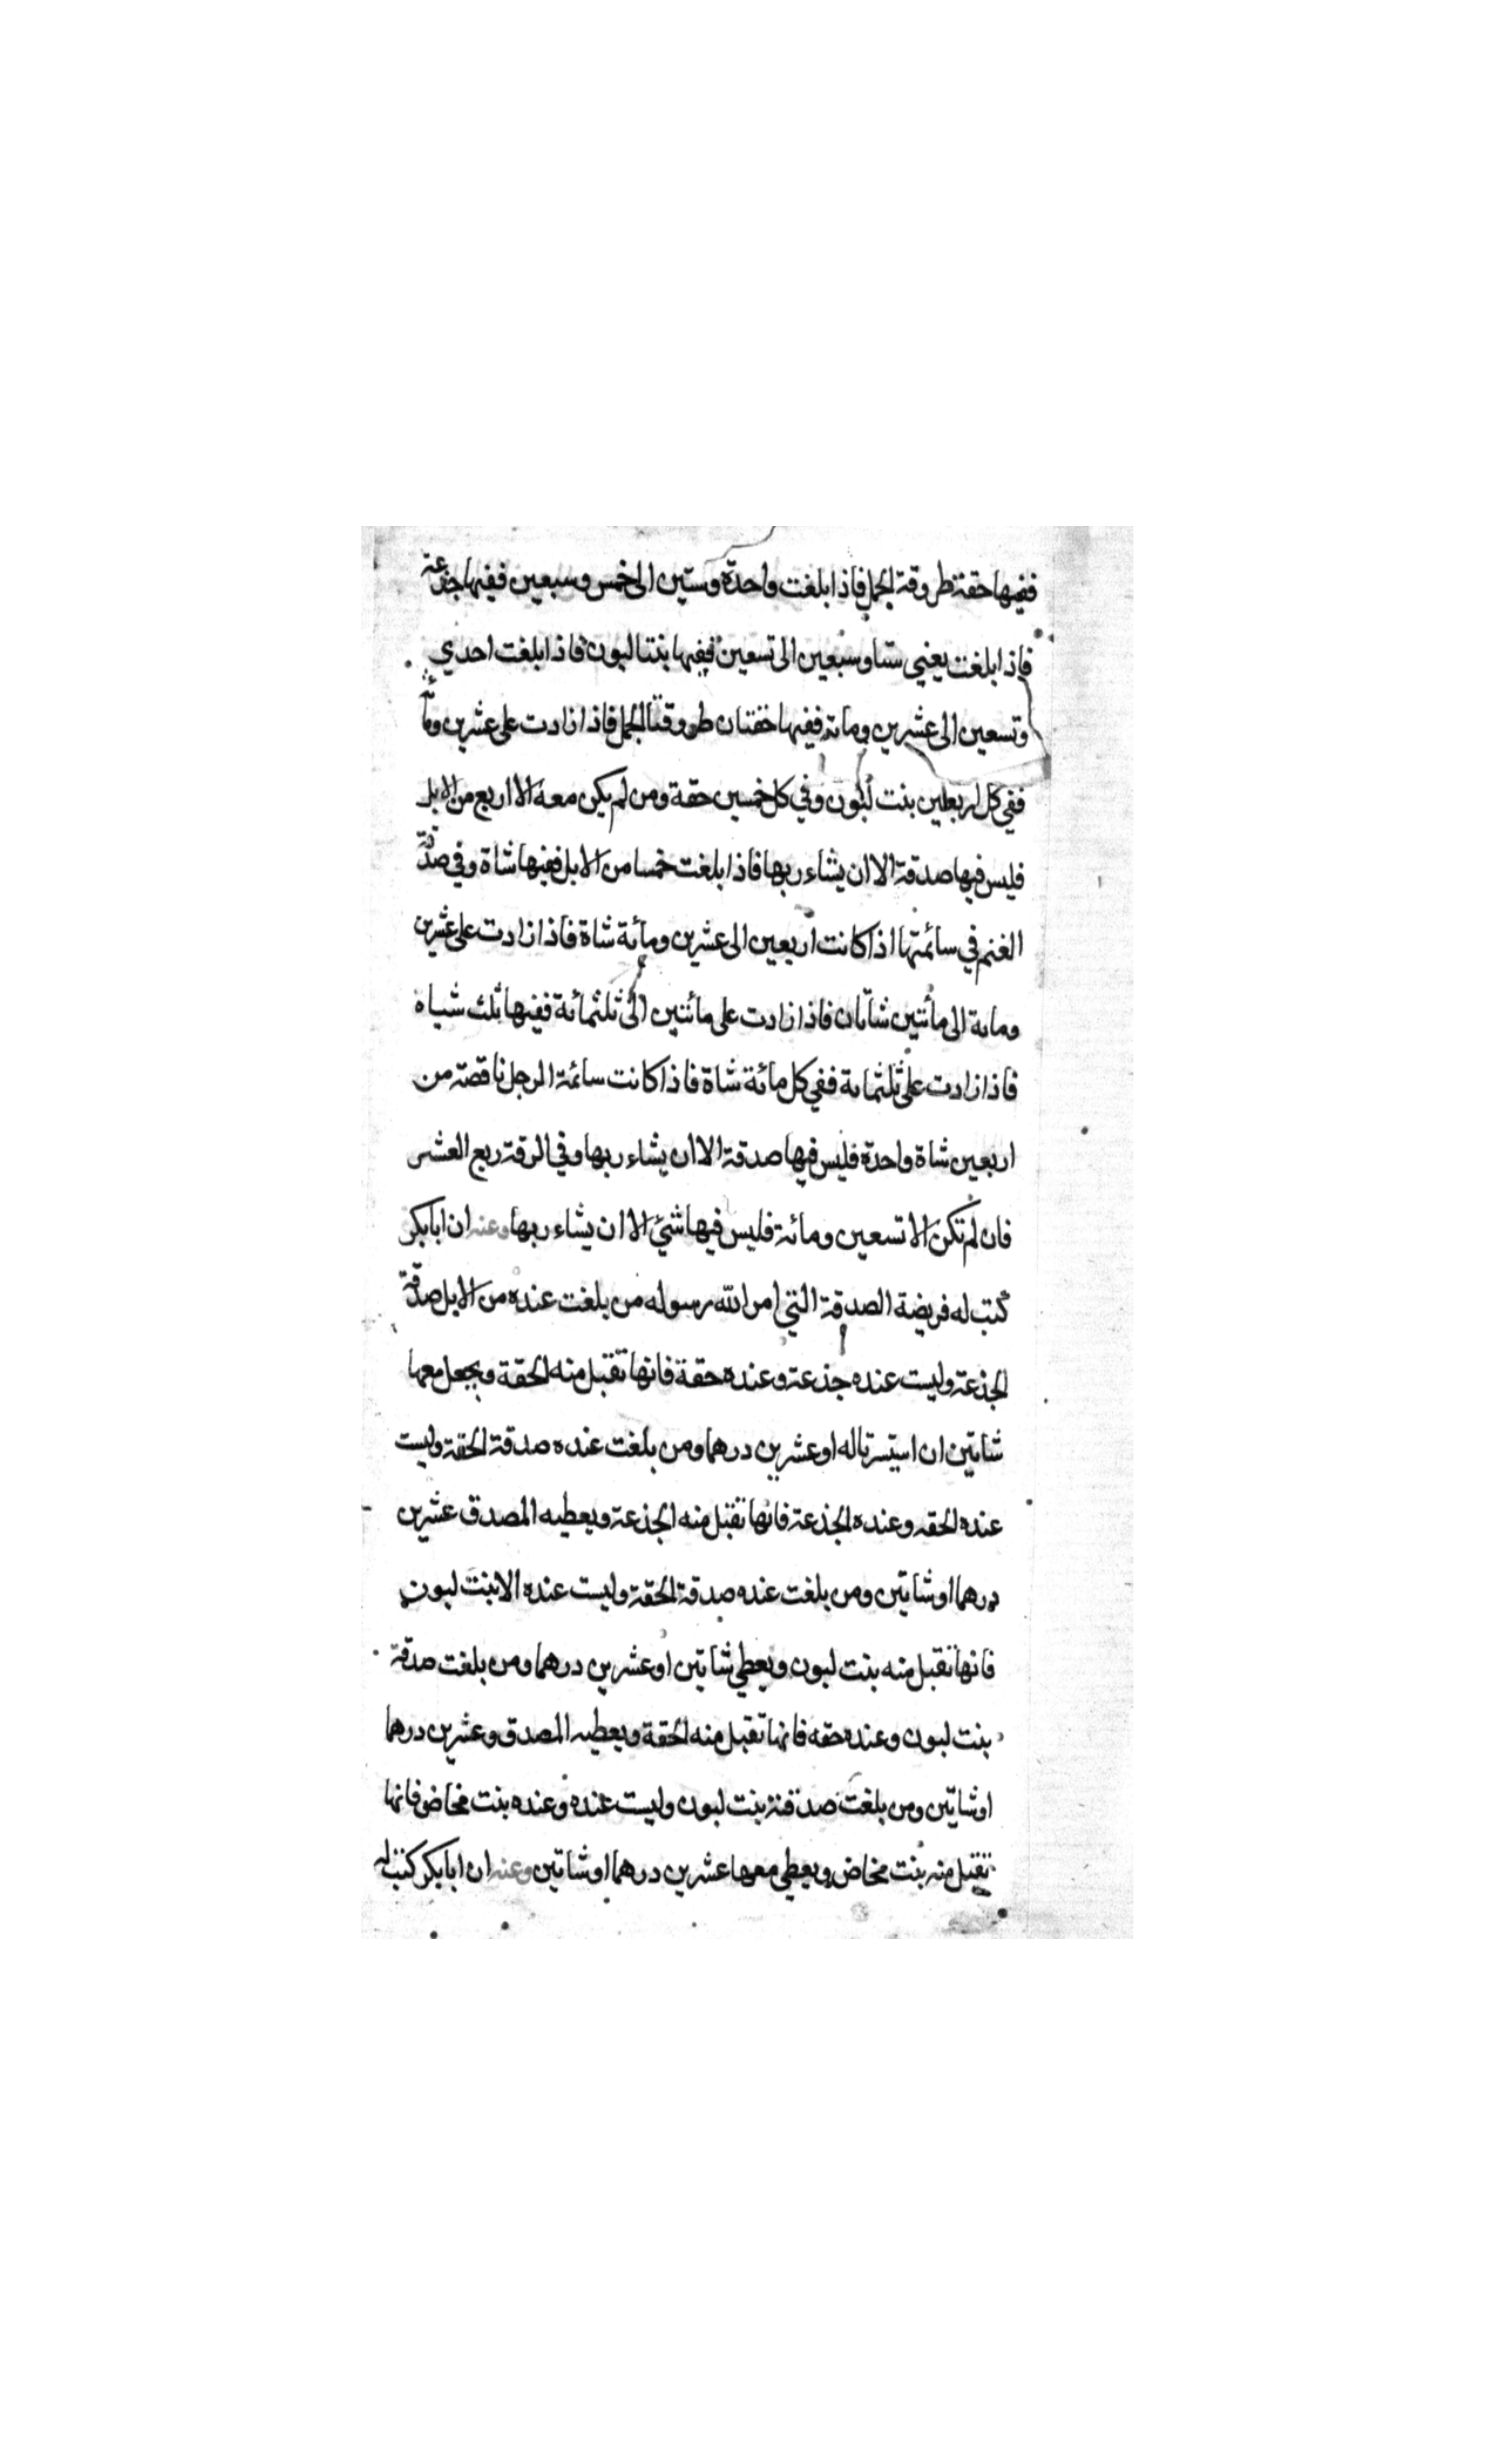 ففيها حقة طروقة الجمل فاذا بلغت واحدة وستين الى خمس وسبعين ففيها جذعة
فاذا بلغت يعني ستا وسبعين الى تسعين ففيها بنتا لبون فاذا بلغت احدي
وتسعين الى عشرين ومائة ففيها حقتان طروقتا الجمل فاذا زادت على عشرين ومائة
ففي كل اربعين بنت لبون وفي كل خمسين حقة ومن لم يكن معه الا اربع من الابل
فليس فيها صدقة الا ان يشاء ربها فاذا بلغت خمسا من الابل ففيها شاة وفي صدقة
الغنم في سائمتها اذا كانت اربعين الى عشرين ومائة شاة فاذا زادت على عشرين
ومائة الى مأتين شاتان فاذا زادت على مائتين الى ثلثمائة ففيها ثلث شياه
فاذا زادت على ثلثمائة ففي كل مائة شاة فاذا كانت سائمة الرجل ناقصة من
اربعين شاة واحدة فليس فيها صدقة الا ان يشاء ربها وفي الرقة ربع العشر
فان لم تكن الا تسعين ومائة فليس فيها شئ الا ان يشاء ربها وعنه ان ابا بكر
كتب له فريضة الصدقة التي امر الله رسوله من بلغت عنده من الابل صدقة
الجذعة وليست عنده جذعة وعنده حقة فانها تقبل منه الحقة ويجعل معها
شاتين ان استيسرتا له او عشرين درهما ومن بلغت عنده صدقة الحقة وليست
عنده الحقه وعنده الجذعة فانها تقبل منه الجذعة ويعطيه المصدق عشرين
درهما او شاتين ومن بلغت عنده صدقة الحقة وليست عنده الا بنت لبون
فانها تقبل منه بنت لبون ويعطي شاتين او عشرين درهما ومن بلغت صدقة
بنت لبون وعنده حقه فانها تقبل منه الحقة ويعطيه المصدق وعشرين درهما
او شاتين ومن بلغت صدقته بنت لبون وليست عنده وعنده بنت مخاض فانها
تقبل منه بنت مخاض ويعطي معها عشرين درهما او شاتين وعنه ان ابا بكر كتب له